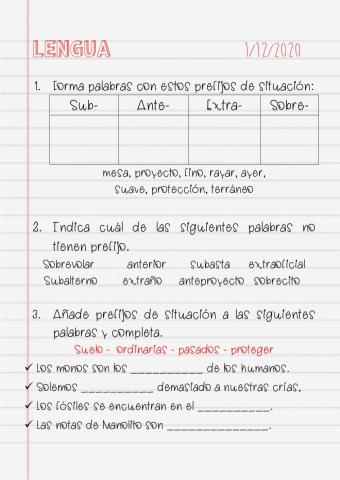 LENGUA 1/12/2020
1. Forma palabras con estos prefijos de situación:
Sub- Ante- Extra- Sobre-
mesa, proyecto, fino, rayar, ayer,
suave, protección, terráneo
2. Indica cuál de las siguientes palabras no
tienen prefijo.
Sobrevolar anterior subasta extraoficial
Subalterno extraño anteproyecto sobrecito
3. Añade prefijos de situación a las siguientes
palabras y completa.
Suelo - ordinarias - pasados - proteger
✓ Los monos son los __________ de los humanos.
✓ Solemos __________ demasiado a nuestras crías.
✓ Los fósiles se encuentran en el __________.
✓ Las notas de Manolito son ______________.